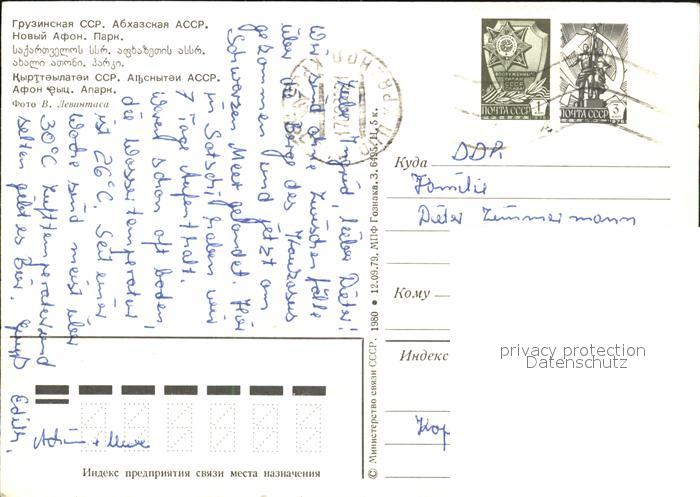 Грузинская ССР. Абхазская АССР.
Новый Афон. Парк.
საქართველოს სსრ. აფხაზეთის ასსრ.
ახალი ათონი. პარკი.
Қырҭтәылатәи ССР. Аҧснытәи АССР.
Афон Ҿыц. Апарк.
Фото В. Левинтаса
Liebe Ingrid, lieber Dieter!
Wir sind ohne Zwischenfälle
über die Berge des Kaukasus
gekommen und jetzt am
Schwarzen Meer gelandet. Hier
in Sotschi haben wir
7 Tage Aufenthalt.
waren schon oft baden,
die Wassertemperatur
ist 26°C. Seit einer
Woche sind meist über
30°C Lufttemperatur und
selten gibt es Bier. Gruß
Edith,
ПОЧТА СССР 1
ПОЧТА СССР 3
Куда DDR
Familie
Dieter Zimmermann
Кому
Индекс
privacy protection
Datenschutz
Кор
© Министерство связи СССР, 1980 • 12.09.79. МПФ Гознака. З. 6495. Ц. 5 к.
Индекс предприятия связи места назначения